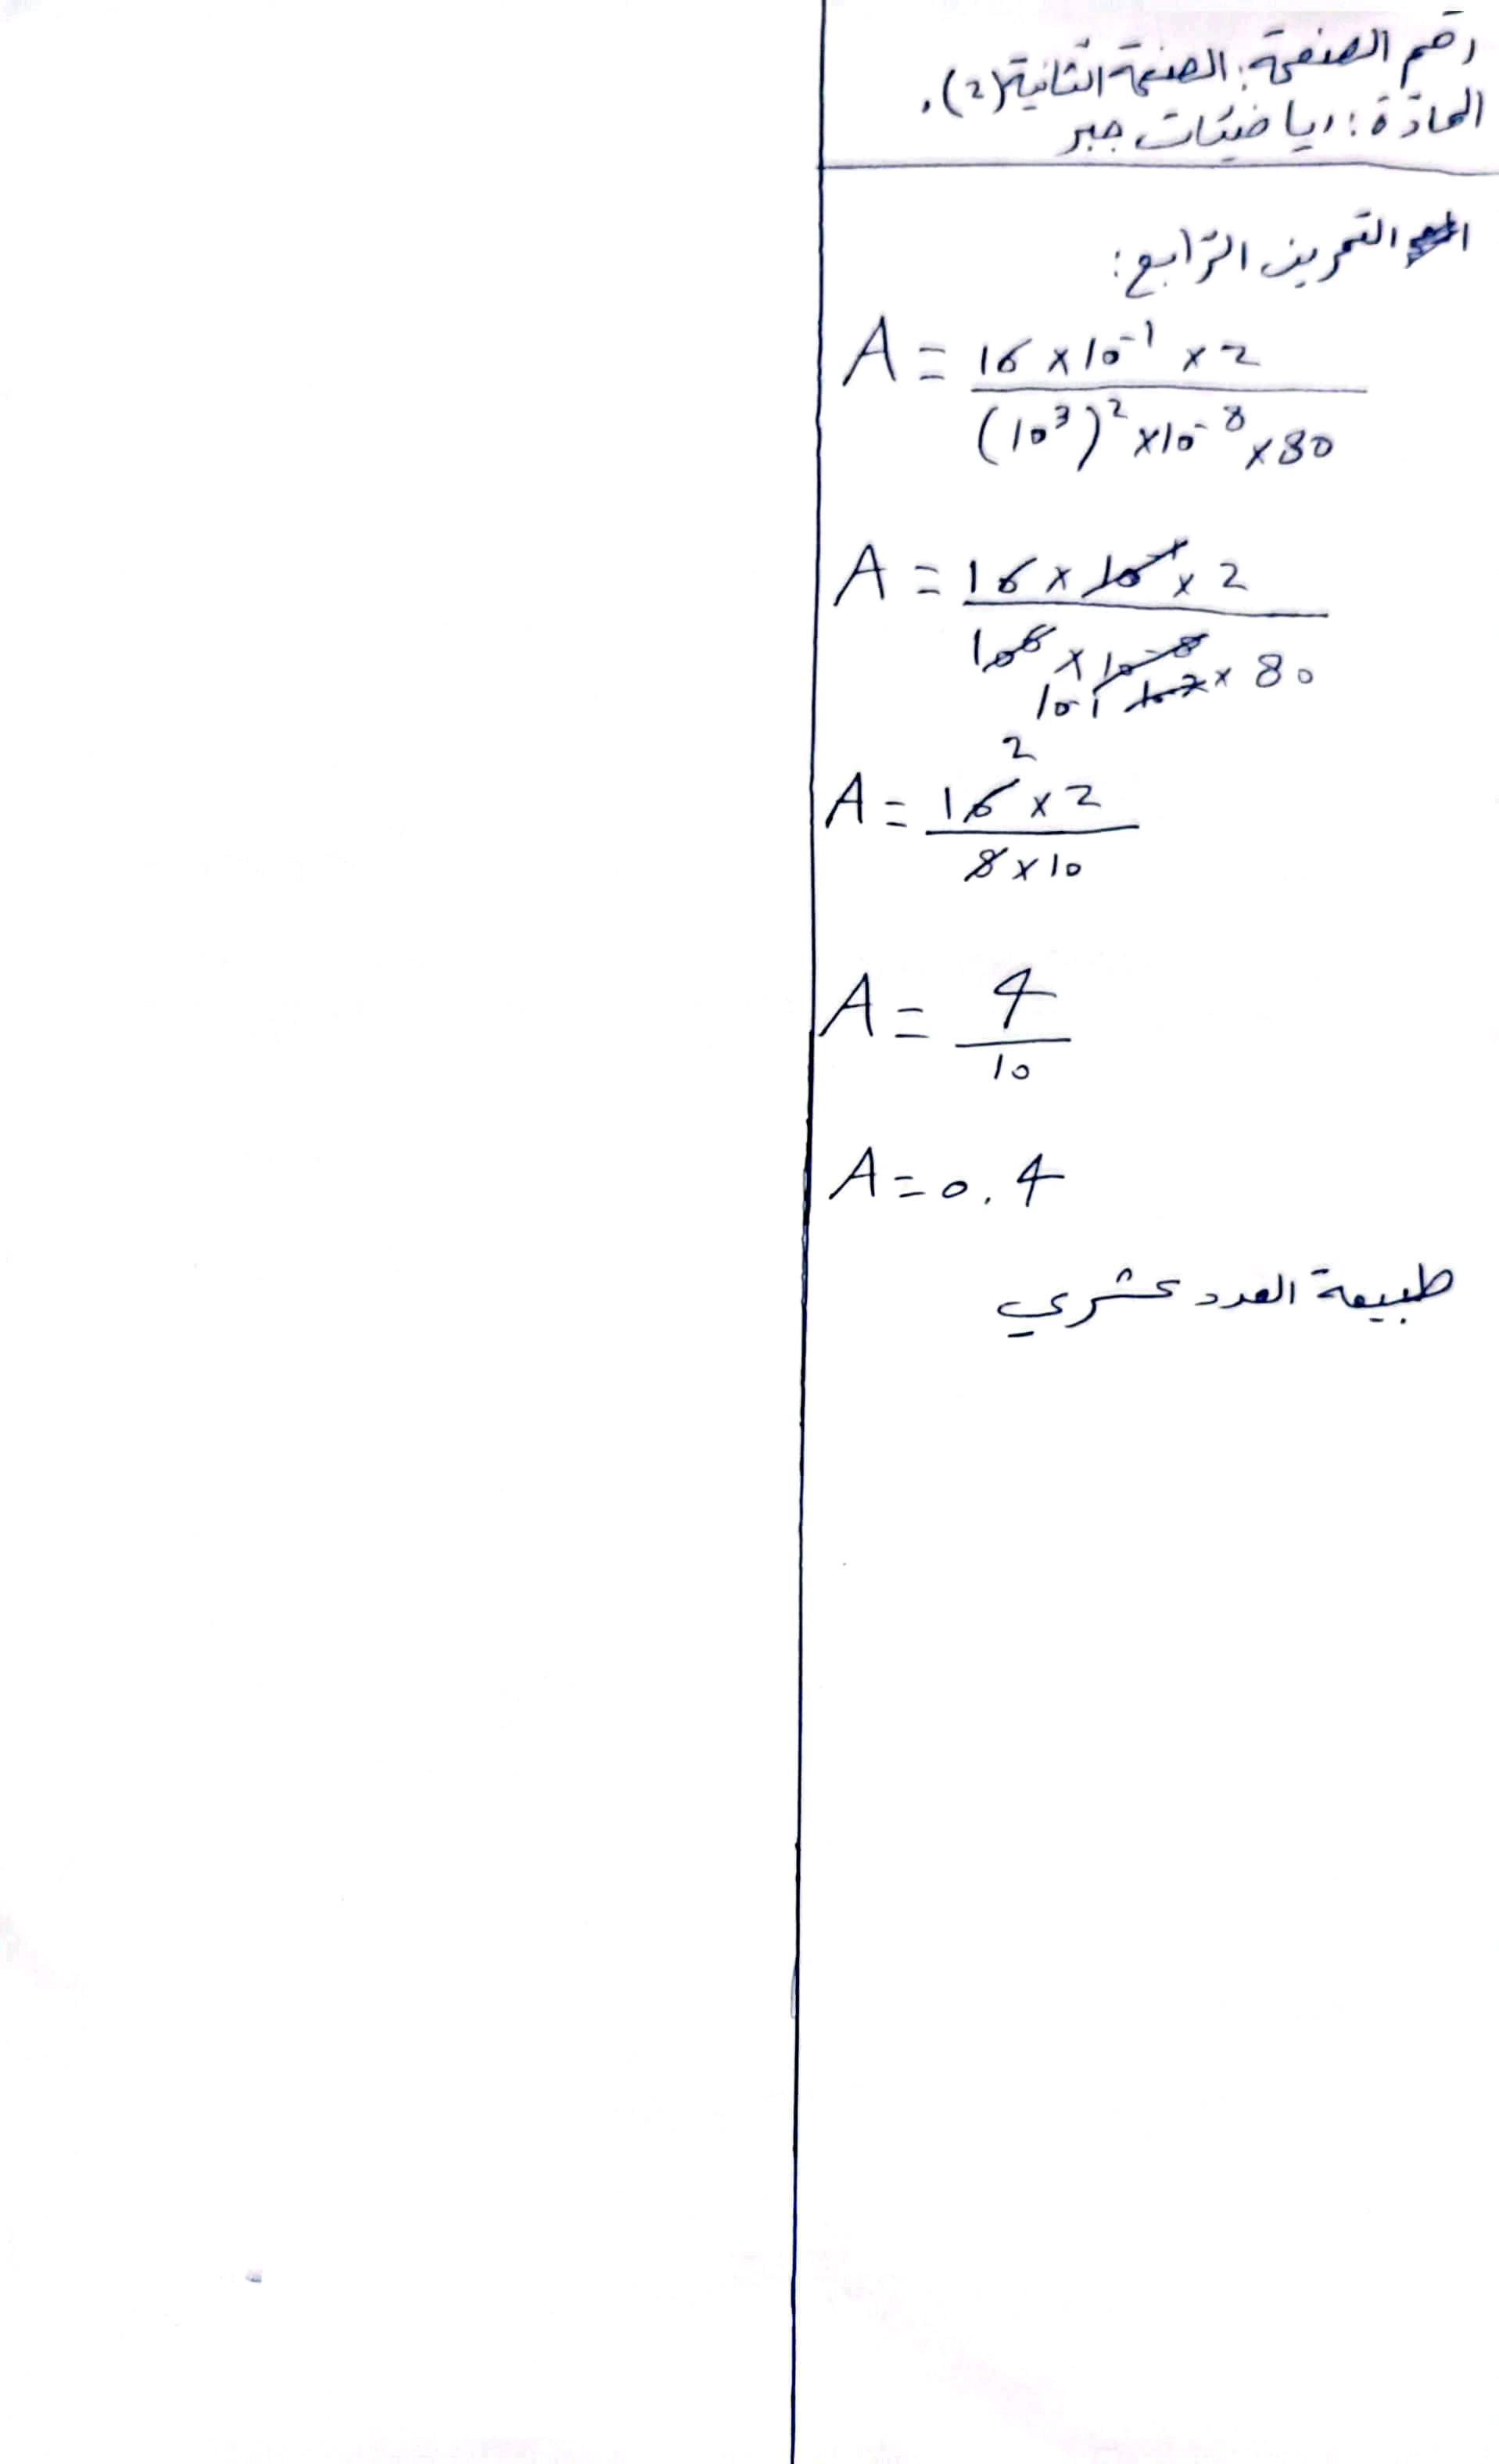 رقم الصفحة: الصفحة الثانية (2).
المادّة: رياضيّات جبر
التمرين الرّابع:
A = 16 × 10⁻¹ × 2
(10³)² × 10⁻⁸ × 80
A = 16 × 10⁻¹ × 2
10⁶ × 10⁻⁸ × 80
10⁻¹
2
A = 16 × 2
8 × 10
A = 4
10
A = 0.4
طبيعة العدد عشري